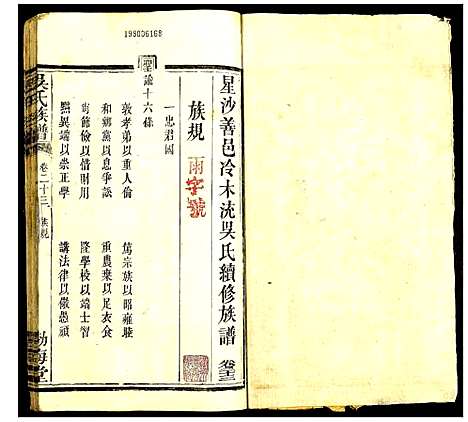 199006168
星沙善邑冷木沇吳氏續修族譜 卷二十三
族規 雨字號
一忠君國
聖諭十六條
敦孝弟以重人倫 篤宗族以昭雍睦
和鄉黨以息爭訟 重農桑以足衣食
尚節儉以惜財用 隆學校以端士習
黜異端以崇正學 講法律以儆愚頑
吳氏族譜 卷二十三 族規 渤海堂